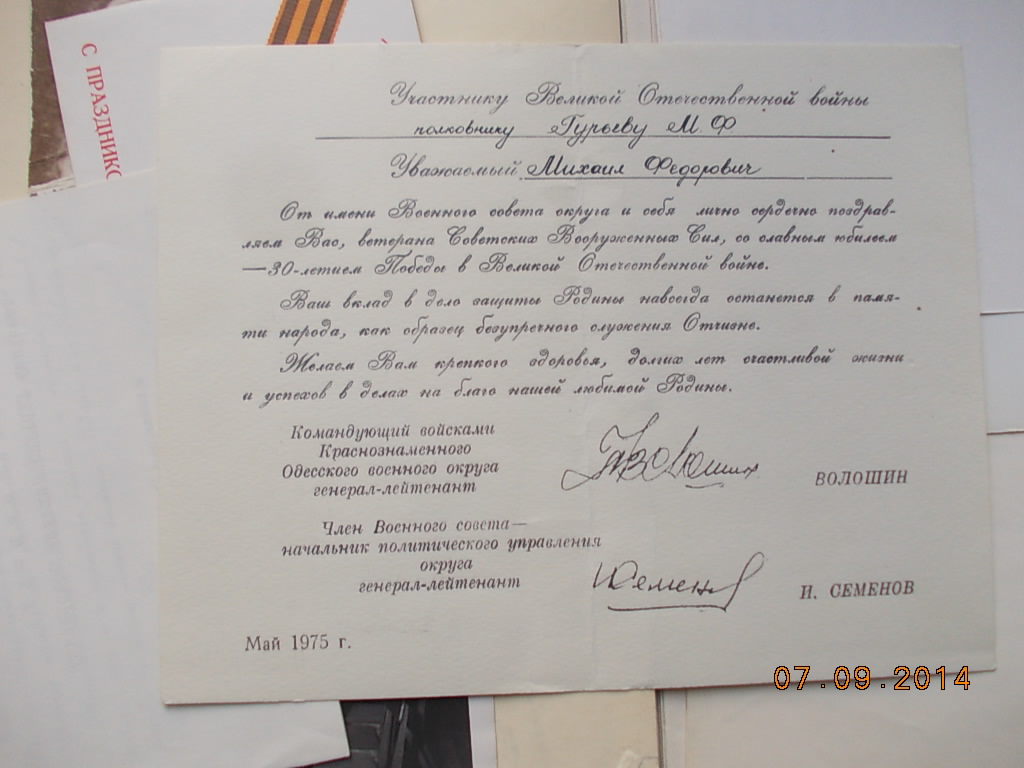 С ПРАЗДНИКО
Участнику Великой Отечественной войны
полковнику Гурьеву М.Ф
Уважаемый Михаил Федорович
От имени Военного совета округа и себя лично сердечно поздрав-
ляем Вас, ветерана Советских Вооруженных Сил, со славным юбилеем
—30-летием Победы в Великой Отечественной войне.
Ваш вклад в дело защиты Родины навсегда останется в памя-
ти народа, как образец безупречного служения Отчизне.
Желаем Вам крепкого здоровья, долгих лет счастливой жизни
и успехов в делах на благо нашей любимой Родины.
Командующий войсками
Краснознаменного
Одесского военного округа
генерал-лейтенант
ВОЛОШИН
Член Военного совета—
начальник политического управления
округа
генерал-лейтенант
И. СЕМЕНОВ
Май 1975 г.
07.09.2014